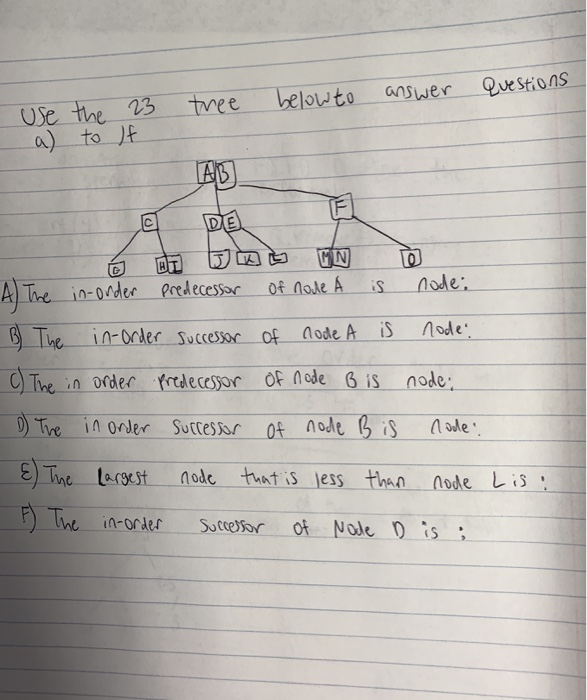 Use the 23 tree below to answer Questions
a) to If
AB
C DE F
G HI J K L MN O
A) The in-order Predecessor of node A is node:
B) The in-order successor of node A is node:
C) The in order predecessor of node B is node:
D) The in order successor of node B is node:
E) The Largest node that is less than node L is:
F) The in-order successor of Node D is: